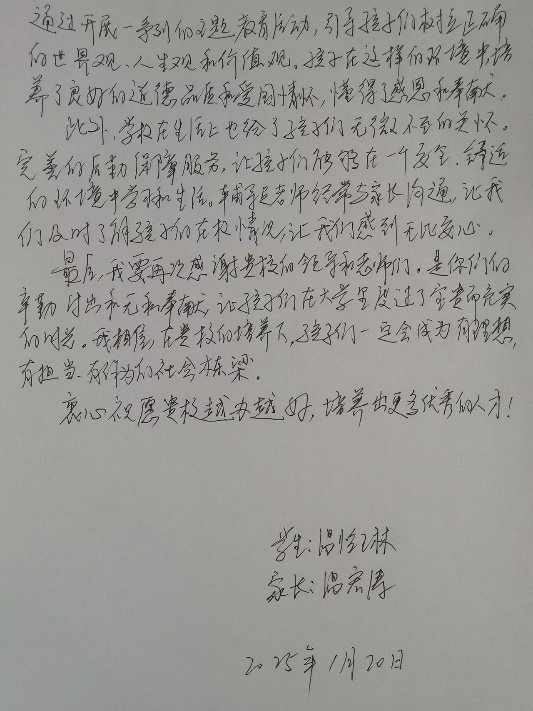 通过开展一系列的主题教育活动，引导孩子们树立正确
的世界观、人生观和价值观。孩子在这样的环境中培
养了良好的道德品质和爱国情怀，懂得了感恩和奉献。
此外，学校在生活上也给了孩子们无微不至的关怀。
完善的后勤保障服务，让孩子们能够在一个安全、舒适
的环境中学习和生活。辅导员老师经常与家长沟通，让我
们及时了解孩子们在校情况，让我们感到无比安心。
最后，我要再次感谢贵校的领导和老师们。是你们的
辛勤付出和无私奉献，让孩子们在大学里度过了宝贵而充实
的时光。我相信，在贵校的培养下，孩子们一定会成为有理想，
有担当、有作为的社会栋梁。
衷心祝愿贵校越办越好，培养出更多优秀的人才！
学生：温 琳
家长：温宏涛
2025年1月20日